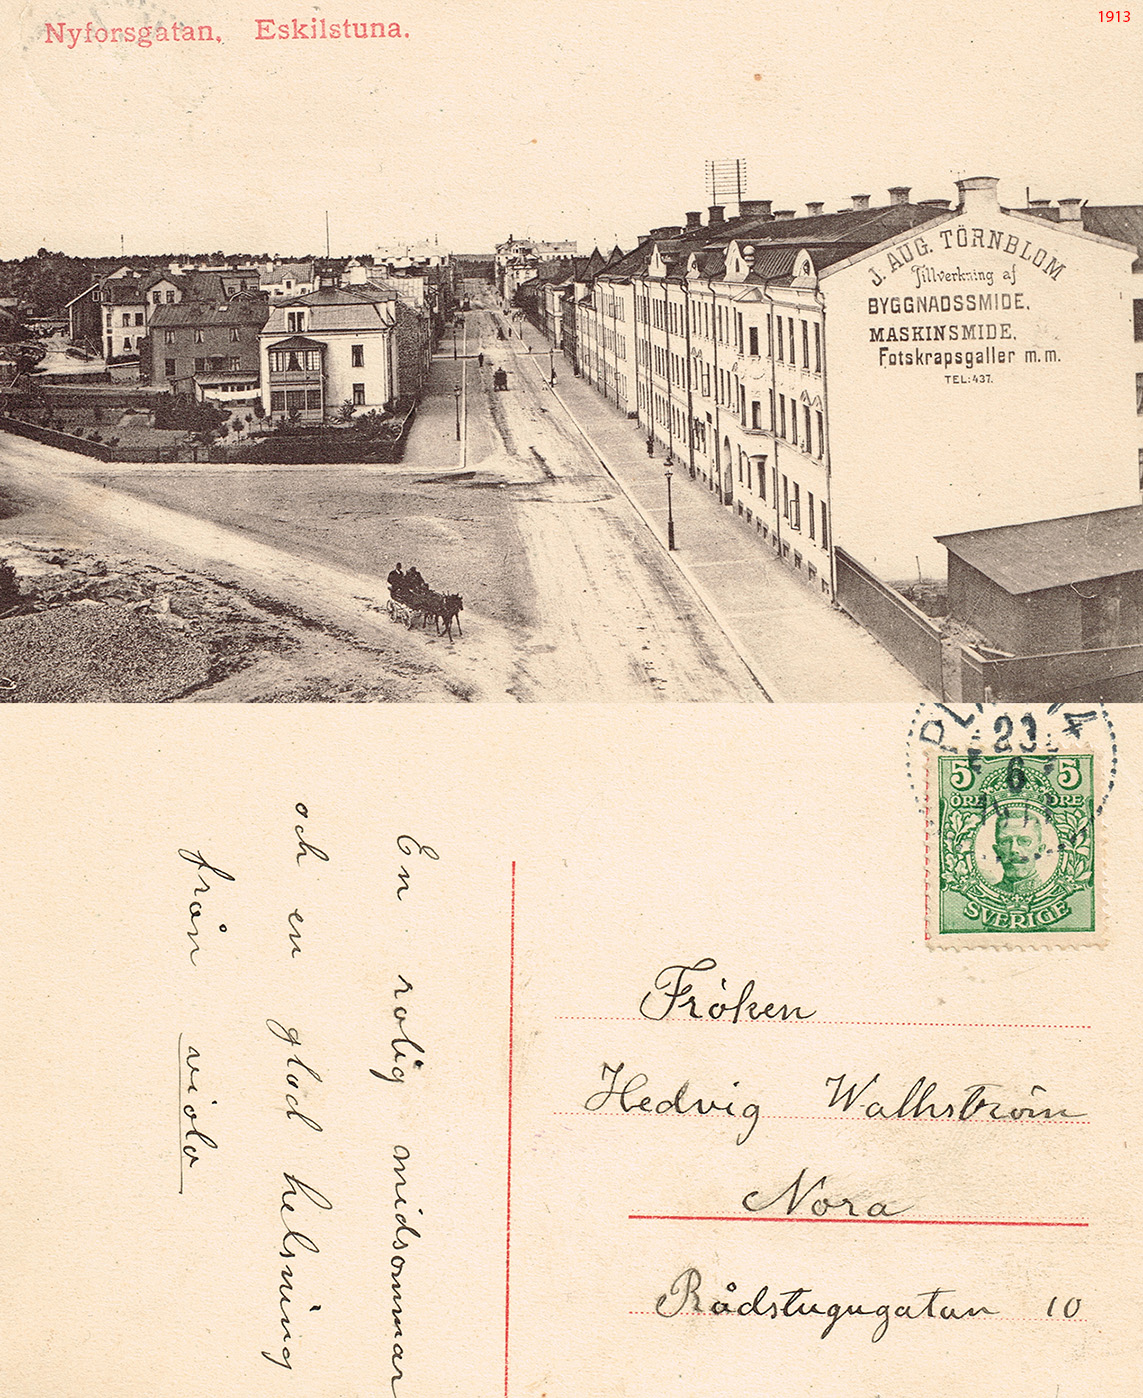 1913
Nyforsgatan, Eskilstuna.
J. AUG. TÖRNBLOM
Tillverkning af
BYGGNADSSMIDE,
MASKINSMIDE,
Fotskrapsgaller m.m.
TEL: 437.
23
6
5 5
ÖRE ÖRE
SVERIGE
En rolig midsommar
och en glad helsning
från viola
Fröken
Hedvig Wallhström
Nora
Rådstugugatan 10